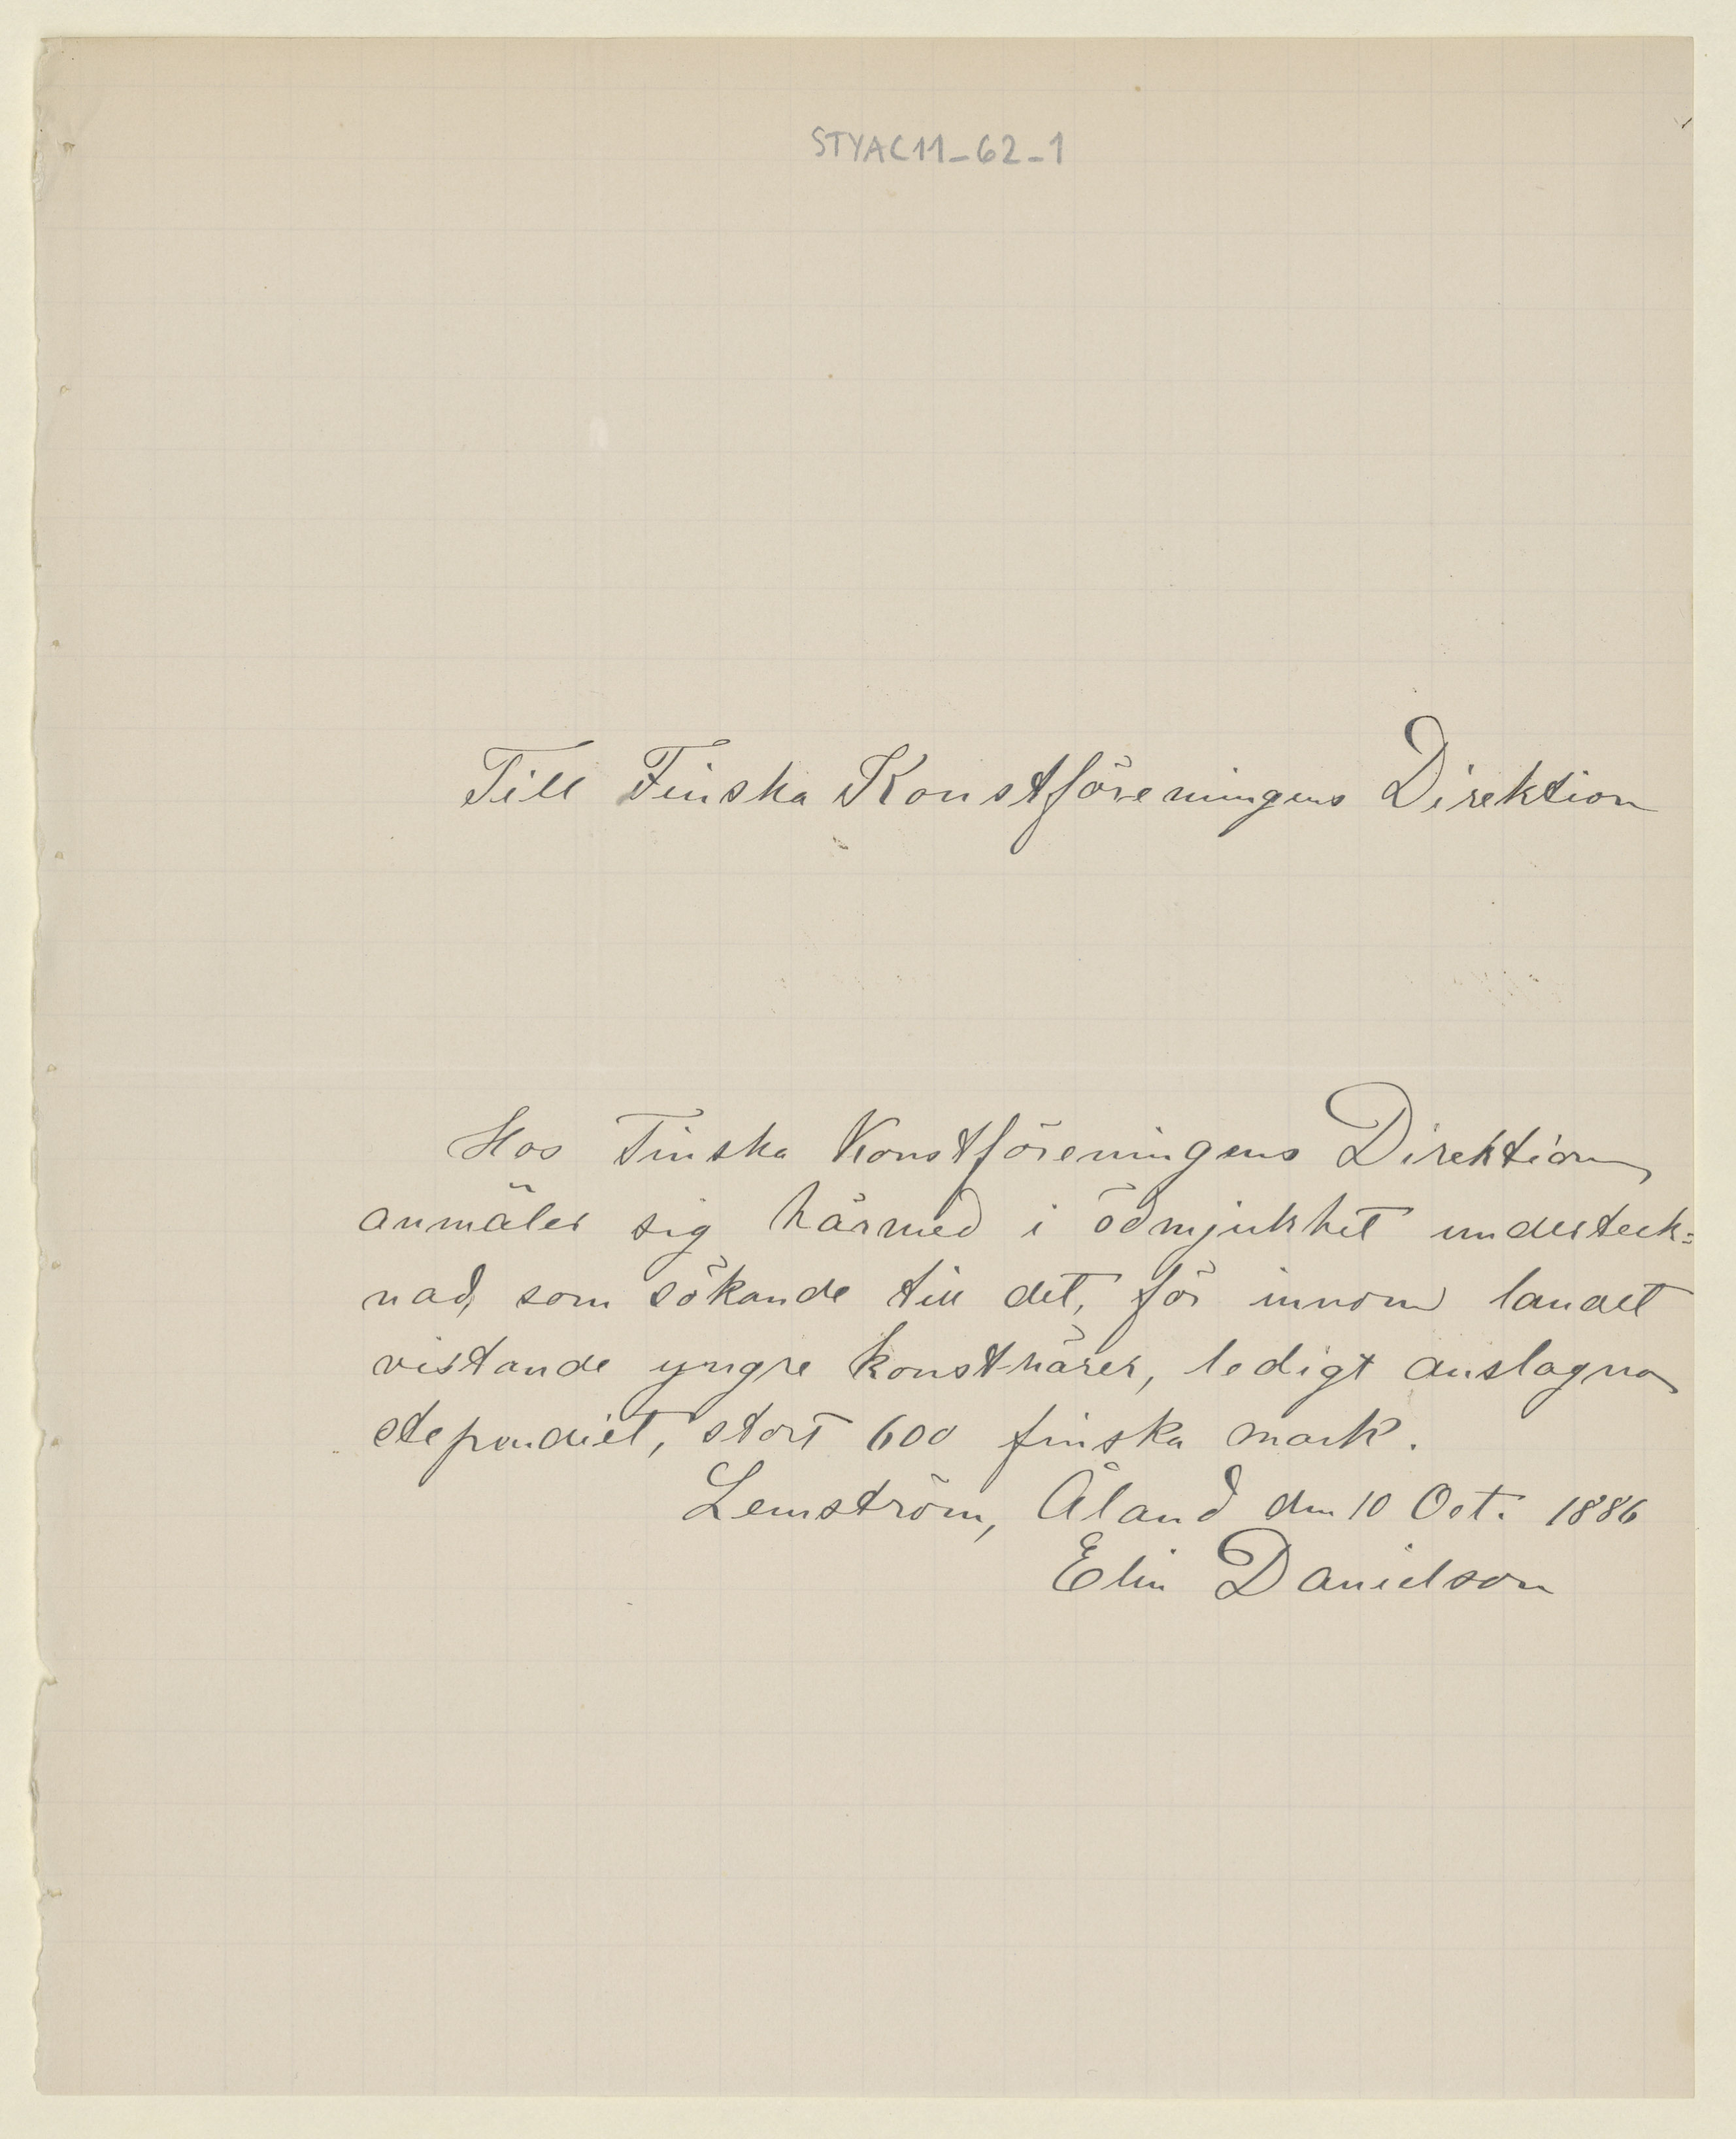 STYAC11_62_1
Till Finska Konstföreningens Direktion
Hos Finska Konstföreningens Direktion
anmäler sig härmed i ödmjukhet underteck=
nad, som sökande till det, för innom landet
vistande yngre konstnärer, ledigt anslagna
stependiet, stort 600 finska mark.
Lemström, Åland den 10 Oct. 1886
Elin Danielson